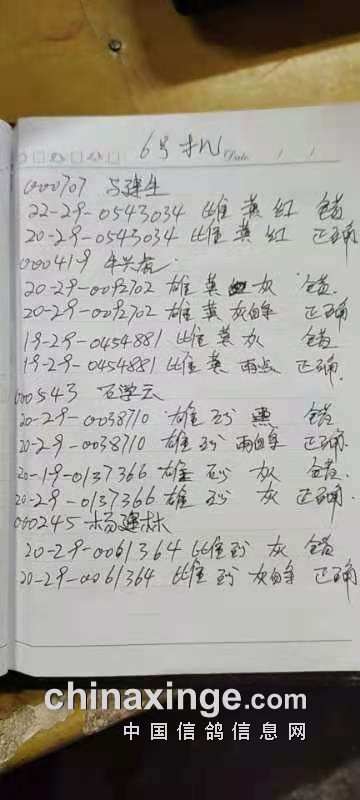 6号机
Date / /
000707 马建生
22-29-0543034 雌 黄 红 错
20-29-0543034 雌 黄 红 正确
000419 牛兴
20-29-0092702 雄 黄 灰 错
20-29-0092702 雄 黄 灰白条 正确
19-29-0454881 雌 黄 灰 错
19-29-0454881 雌 黄 雨点 正确
000543 石学云
20-29-0038710 雄 砂 黑 错
20-29-0038710 雄 砂 雨白条 正确
20-19-0137366 雄 砂 灰 错
20-29-0137366 雄 砂 灰 正确
000245 杨建林
20-29-0061364 雌 砂 灰 错
20-29-0061364 雌 砂 灰白条 正确
chinaxinge.com
中国信鸽信息网